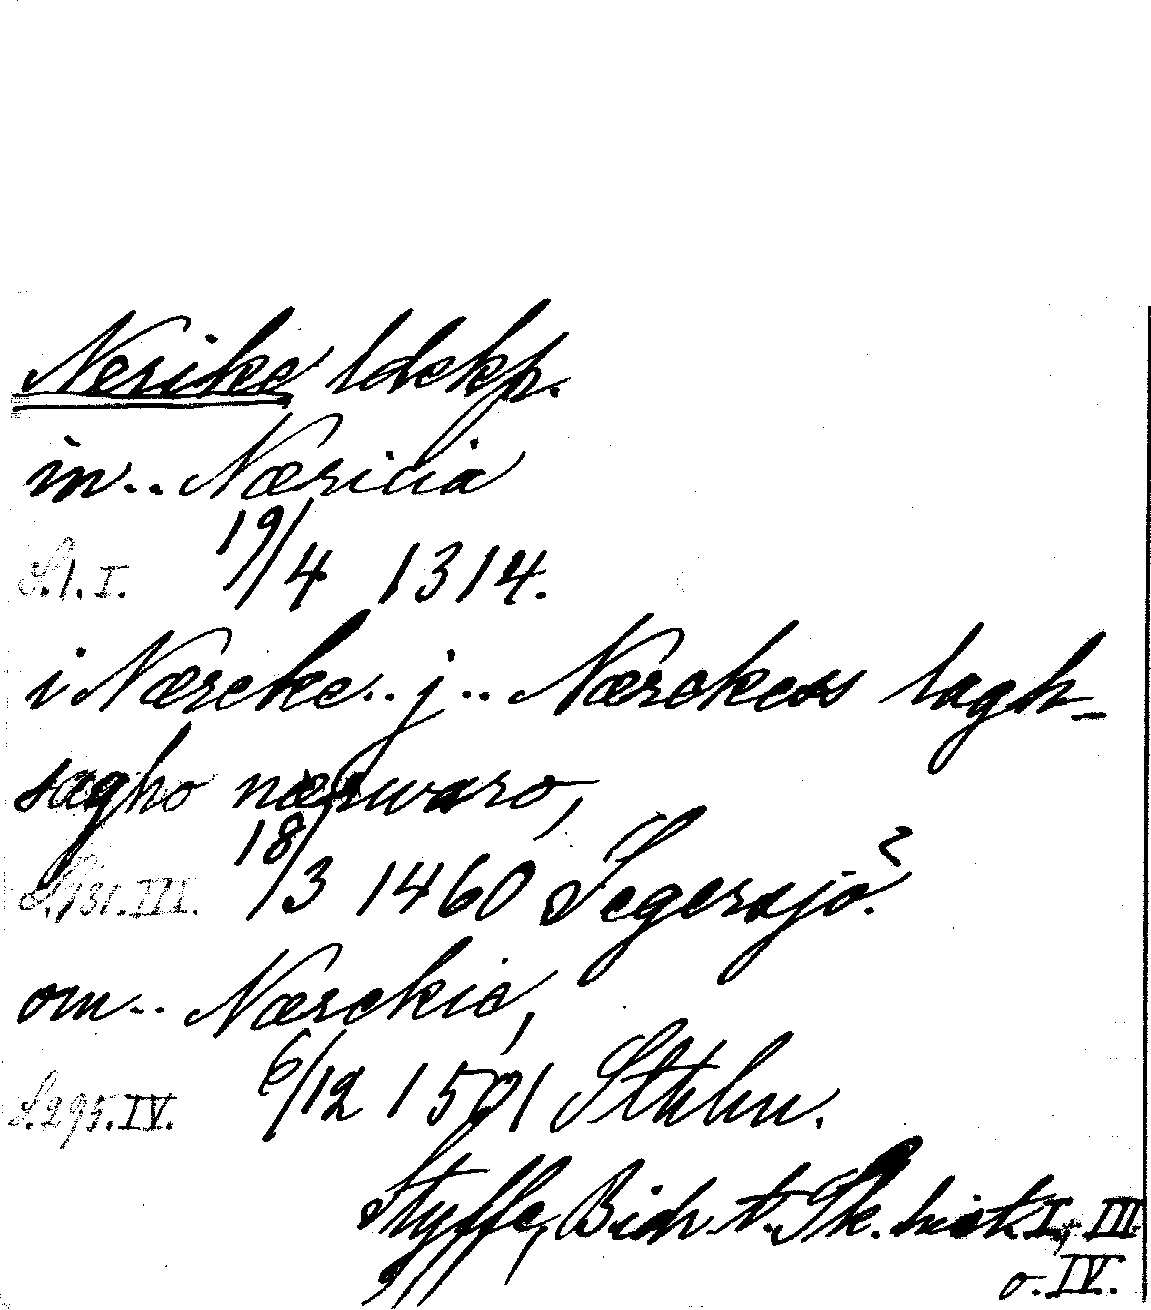 Nerike ldskp.
in.. Næricia
S.1.I. 19/4 1314.
i Nærcke.. j.. Nærckes lagh-
sagho nærwaro,
S.131.III. 18/3 1460 Segersjö.
om.. Nærckie,
S.295.IV. 6/12 1501 Sthlm.
Styffe, Bidr. t. Sk. hist. I, III
o. IV.